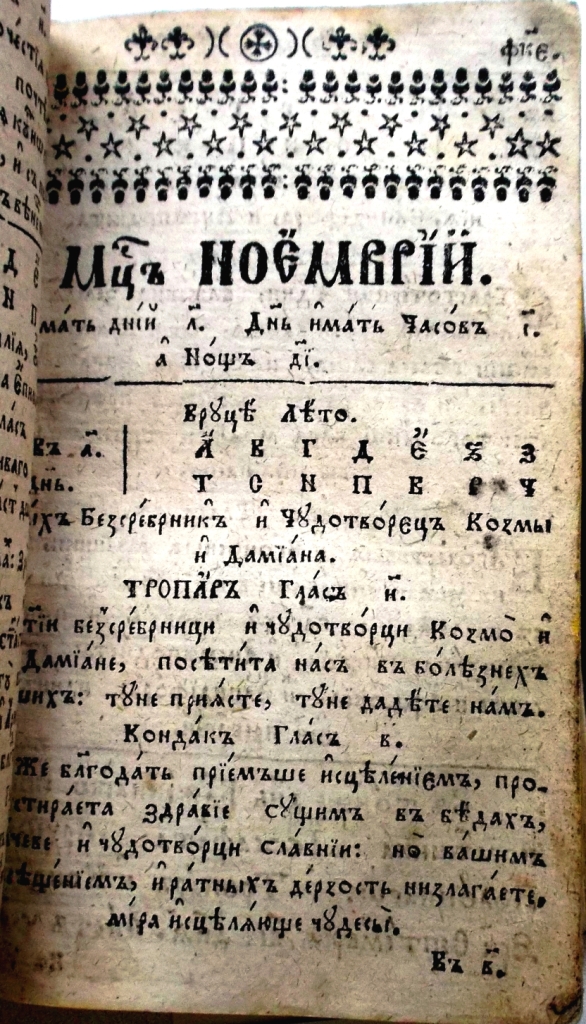 фк҃є.
Мц҃ъ НОЄ́МВРЇЙ.
мать дні́й л҃. Дн҃ь и҆́мать Часо́въ і҃.
а҆ Но́щъ д҃і.
вруцѣ̀ Лѣ́то.
въ а҃. А҆ В Г Д Є҆ Ѕ З
дн҃ь. Т С Н П В Р Ч
Безсре́брникъ и҆ Чꙋдотво́рєцъ Козмы̀
и҆ Дамїа́на.
ТРОПА́РЪ Гла́съ и҃.
тїи безсре́брници и҆ чꙋдотво́рци Козмо̀ и҆
Дамїа́не, посѣти́та на́съ въ болѣ́знехъ
шихъ: тꙋ́не прия́сте, тꙋ́не дади́те на́мъ.
Конда́къ Гла́съ в҃.
Же бл҃года́ть прїе́мъше и҆сцѣле́нїємъ, про-
стира́єта здра́вїє сꙋ́щимъ въ бѣда́хъ,
чеве и҆ чꙋдотво́рци сла́внїи: но̀ ва́шимъ
ѣще́нїємъ, и҆ ра́тныхъ де́рзость низлага́єте,
мі́ра и҆сцѣля́юще чꙋдєсы̀.
Въ в҃.